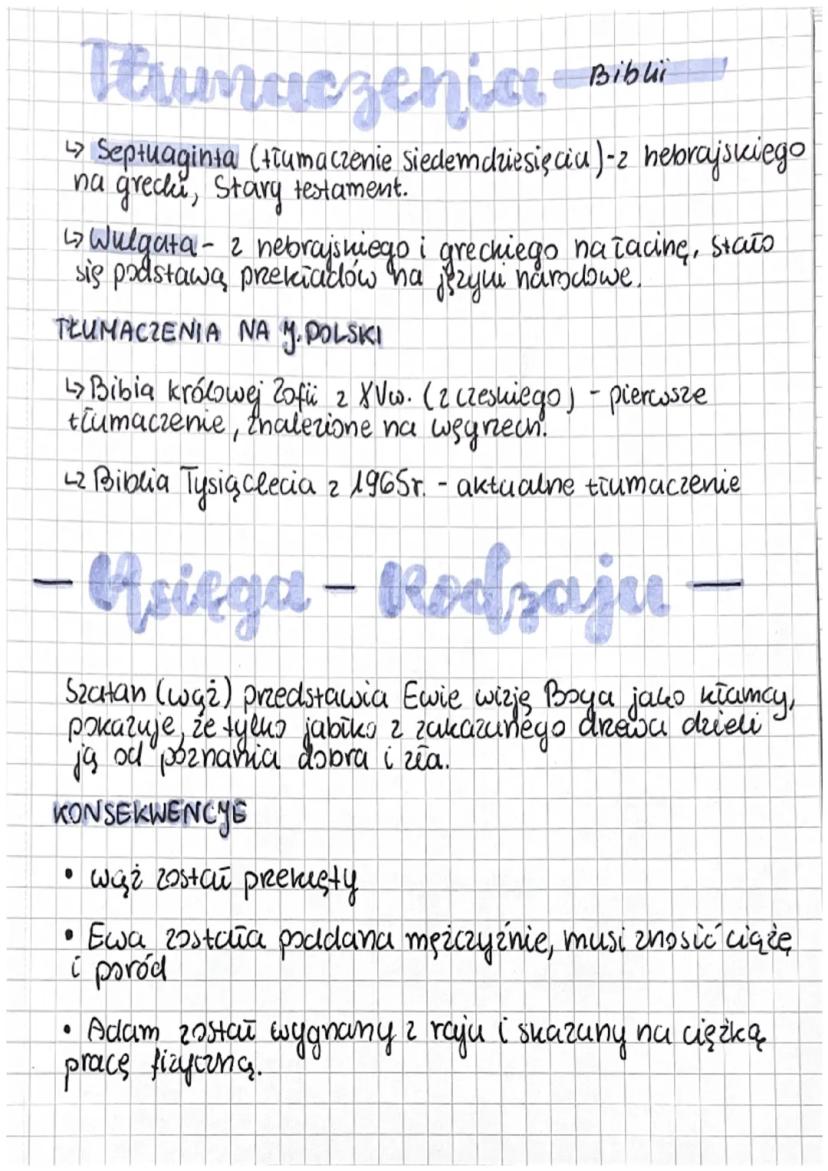 Tłumaczenia Biblii
↳ Septuaginta (tłumaczenie siedemdziesięciu) - z hebrajskiego
na grecki, Stary testament.
↳ Wulgata - z hebrajskiego i greckiego na łacinę, stało
się podstawą przekładów na języki narodowe.
TŁUMACZENIA NA J. POLSKI
↳ Biblia królowej Zofii z XVw. (z czeskiego) - pierwsze
tłumaczenie, znalezione na węgrzech.
↳ Biblia Tysiąclecia z 1965r. - aktualne tłumaczenie
- Księga - Rodzaju -
Szatan (wąż) przedstawia Ewie wizję Boga jako kłamcy,
pokazuje, że tylko jabłko z zakazanego drzewa dzieli
ją od poznania dobra i zła.
KONSEKWENCJE
• wąż został przeklęty
• Ewa została poddana mężczyźnie, musi znosić ciążę
i poród
• Adam został wygnany z raju i skazany na ciężką
pracę fizyczną.